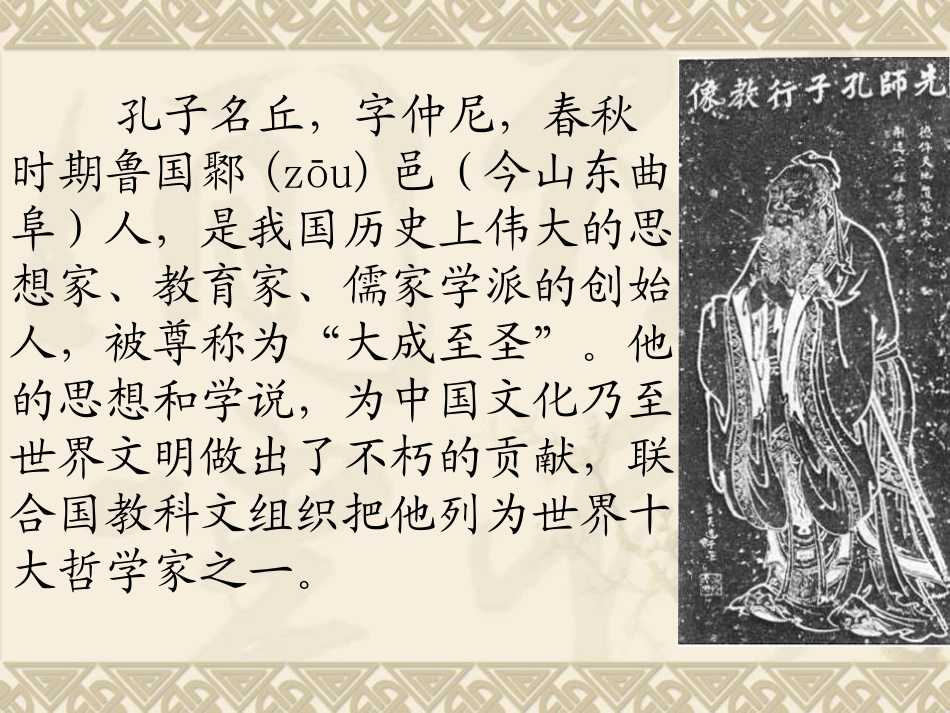 孔子名丘，字仲尼，春秋
时期鲁国鄹（zōu）邑（今山东曲
阜）人，是我国历史上伟大的思
想家、教育家、儒家学派的创始
人，被尊称为“大成至圣”。他
的思想和学说，为中国文化乃至
世界文明做出了不朽的贡献，联
合国教科文组织把他列为世界十
大哲学家之一。
先師孔子行教像